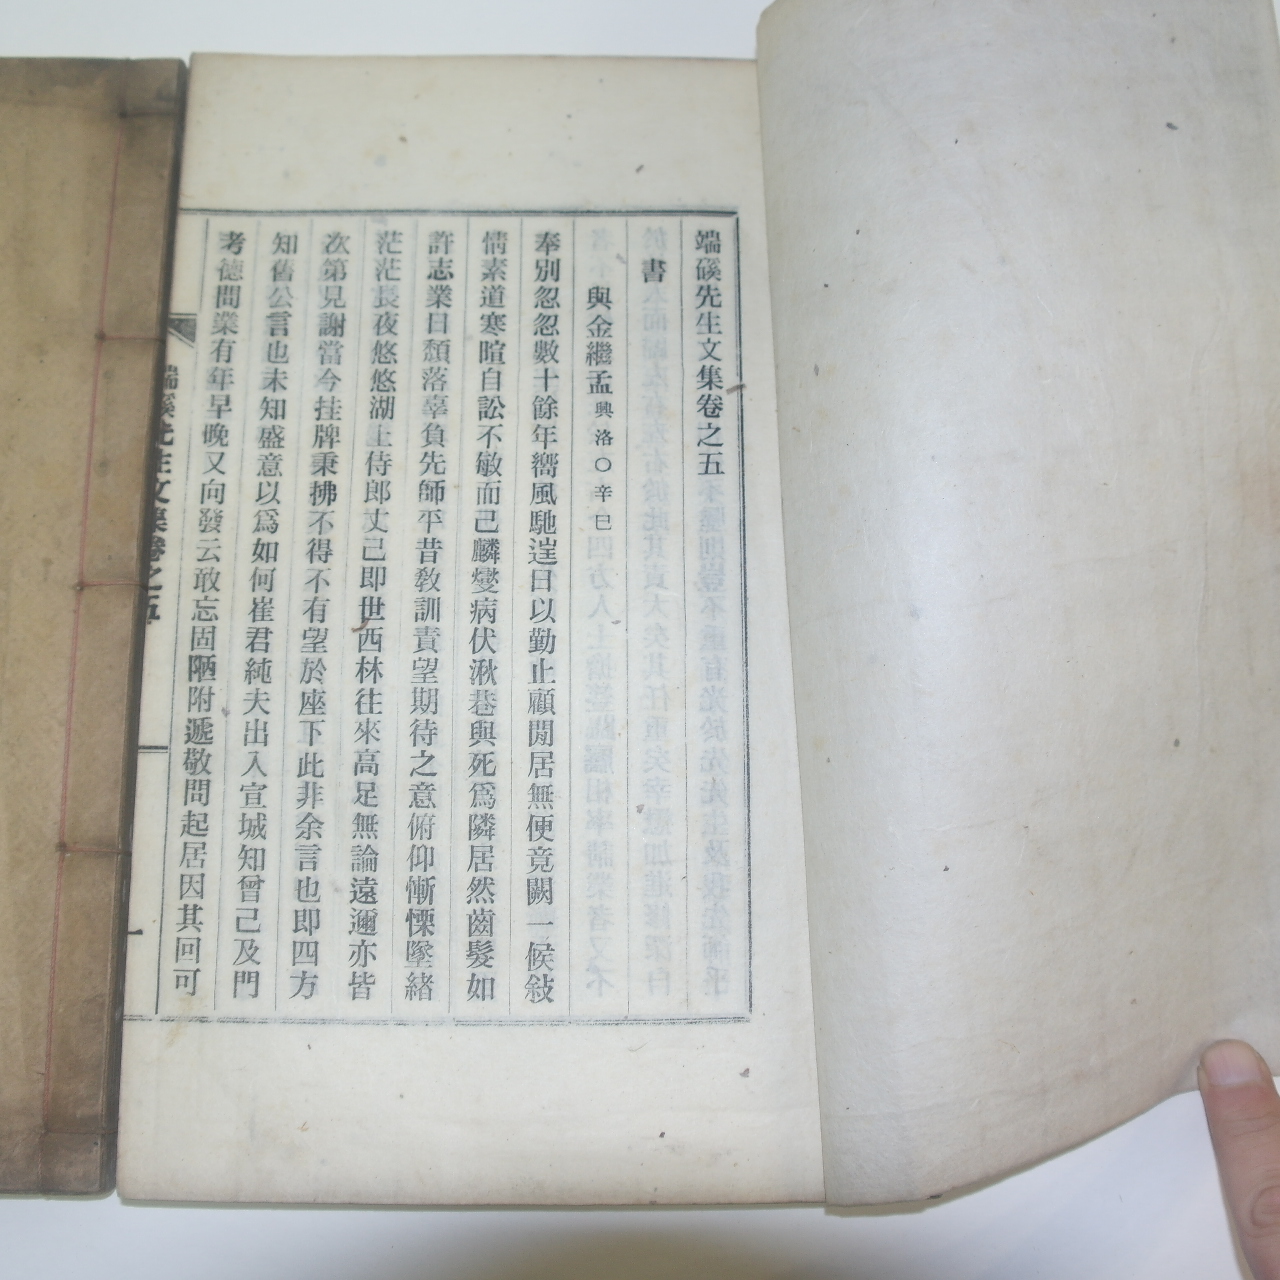 端磎先生文集卷之五
書
與金繼孟興洛○辛巳
奉別忽忽數十餘年嚮風馳𨓏日以勤止顧閒居無便竟闕一候敍
情素道寒暄自訟不敏而已麟爕病伏湫巷與死爲隣居然齒髮如
許志業日頹落辜負先師平昔敎訓責望期待之意俯仰慚慄墜緖
茫茫長夜悠悠湖上侍郎丈已即世西林往來高足無論遠邇亦皆
次第見謝當今挂牌秉拂不得不有望於座下此非余言也即四方
知舊公言也未知盛意以爲如何崔君純夫出入宣城知曾已及門
考德問業有年早晩又向發云敢忘固陋附遞敬問起居因其回可
端磎先生文集卷之五
一